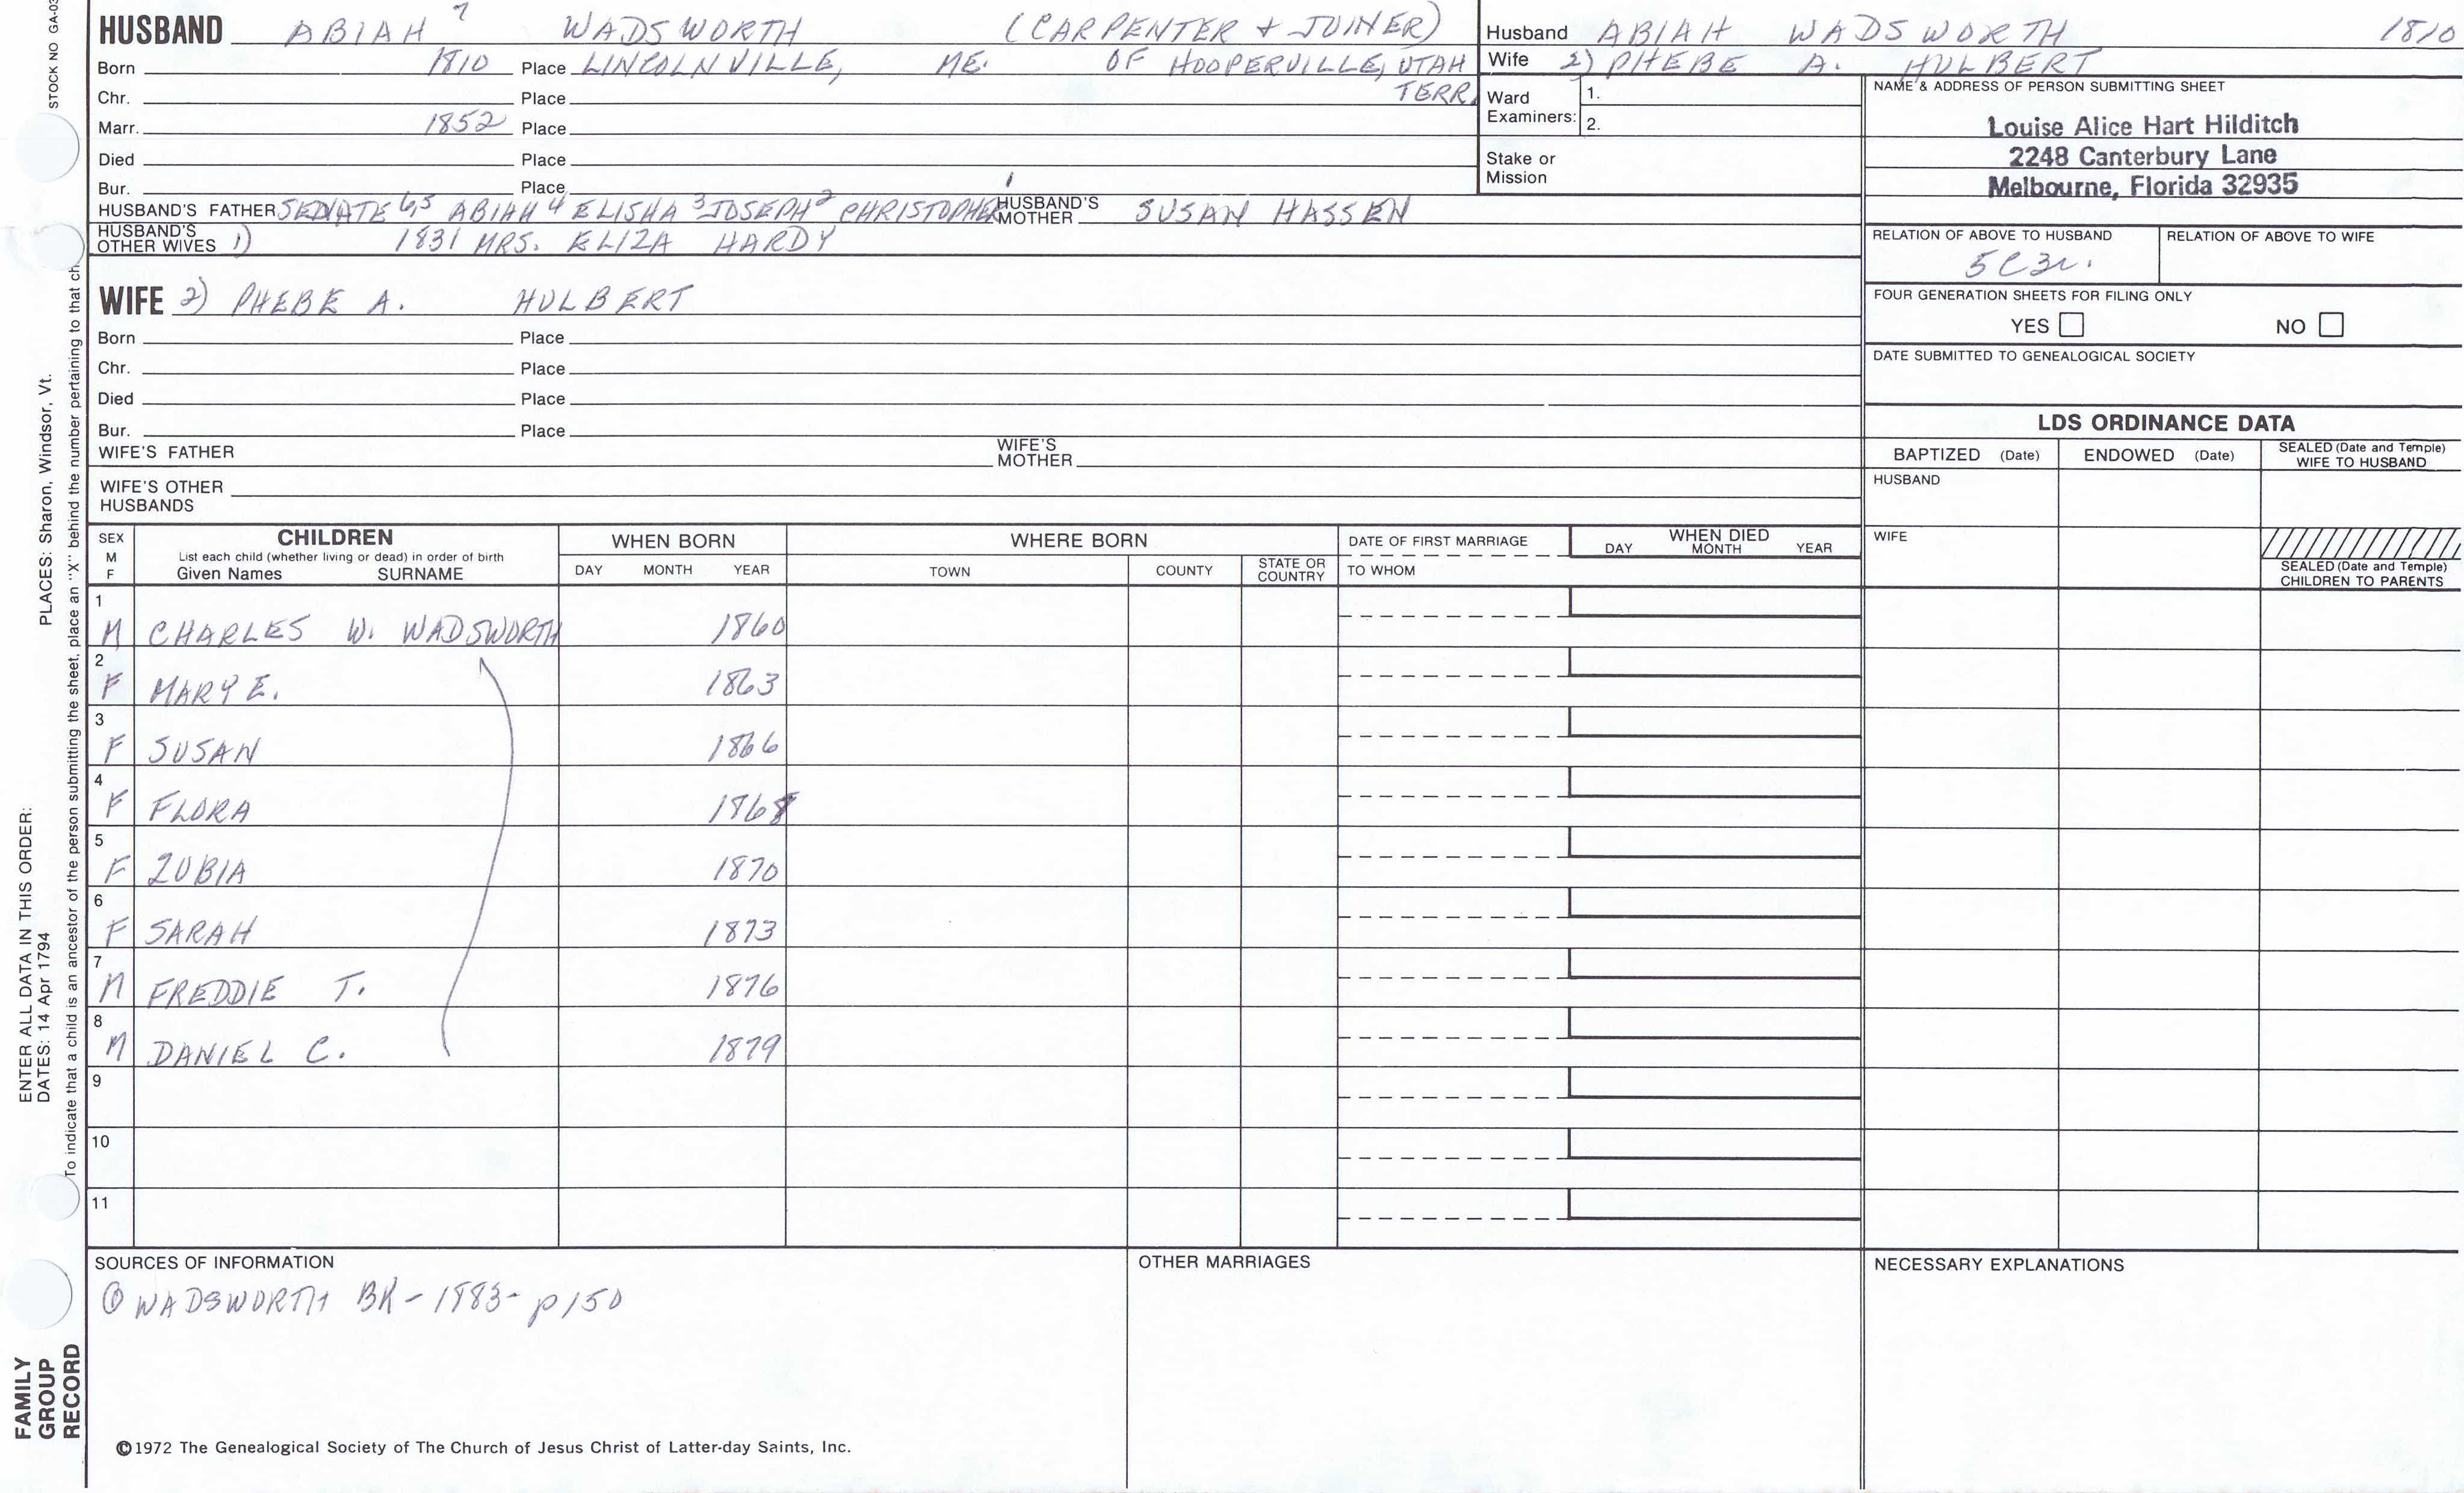 STOCK NO GA-03
HUSBAND ABIAH 7 WADSWORTH (CARPENTER + JOINER)
Born 1810 Place LINCOLNVILLE, ME. OF HOOPERVILLE, UTAH TERR.
Chr. Place
Marr. 1852 Place
Died Place
Bur. Place
HUSBAND'S FATHER SEDATE 6,5 ABIAH 4 ELISHA 3 JOSEPH 2 CHRISTOPHER 1 HUSBAND'S MOTHER SUSAN HASSEN
HUSBAND'S OTHER WIVES 1) 1831 MRS. ELIZA HARDY
WIFE 2) PHEBE A. HULBERT
Born Place
Chr. Place
Died Place
Bur. Place
WIFE'S FATHER WIFE'S MOTHER
WIFE'S OTHER HUSBANDS
Husband ABIAH WADSWORTH 1810
Wife 2) PHEBE A. HULBERT
Ward Examiners: 1.
2.
Stake or Mission
NAME & ADDRESS OF PERSON SUBMITTING SHEET
Louise Alice Hart Hilditch
2248 Canterbury Lane
Melbourne, Florida 32935
RELATION OF ABOVE TO HUSBAND RELATION OF ABOVE TO WIFE
5C3r.
FOUR GENERATION SHEETS FOR FILING ONLY
YES NO
DATE SUBMITTED TO GENEALOGICAL SOCIETY
LDS ORDINANCE DATA
BAPTIZED (Date) ENDOWED (Date) SEALED (Date and Temple) WIFE TO HUSBAND
HUSBAND
WIFE
SEALED (Date and Temple) CHILDREN TO PARENTS
SEX M F
CHILDREN
List each child (whether living or dead) in order of birth
Given Names SURNAME
WHEN BORN
DAY MONTH YEAR
WHERE BORN
TOWN COUNTY STATE OR COUNTRY
DATE OF FIRST MARRIAGE
TO WHOM
WHEN DIED
DAY MONTH YEAR
1 M CHARLES W. WADSWORTH 1860
2 F MARY E. 1863
3 F SUSAN 1866
4 F FLORA 1868
5 F ZUBIA 1870
6 F SARAH 1873
7 M FREDDIE T. 1876
8 M DANIEL C. 1879
9
10
11
SOURCES OF INFORMATION
① WADSWORTH BK - 1883 - p150
OTHER MARRIAGES
NECESSARY EXPLANATIONS
©1972 The Genealogical Society of The Church of Jesus Christ of Latter-day Saints, Inc.
FAMILY GROUP RECORD
ENTER ALL DATA IN THIS ORDER:
DATES: 14 Apr 1794 PLACES: Sharon, Windsor, Vt.
To indicate that a child is an ancestor of the person submitting the sheet, place an "X" behind the number pertaining to that ch